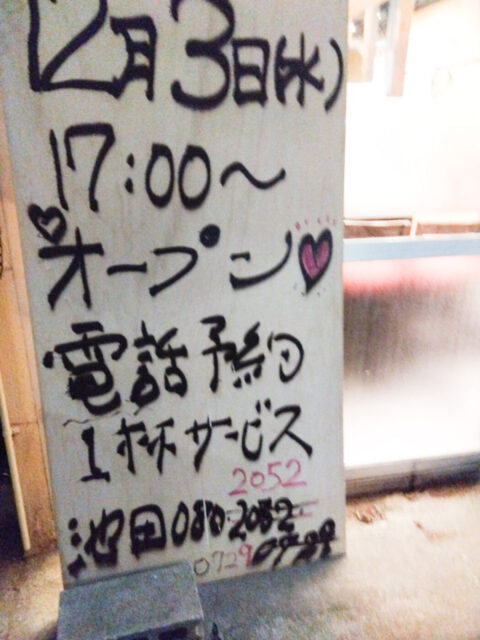 12月3日(水)
17:00〜
オープン
電話予約
1杯サービス
2052
池田080-2052
0729 0729